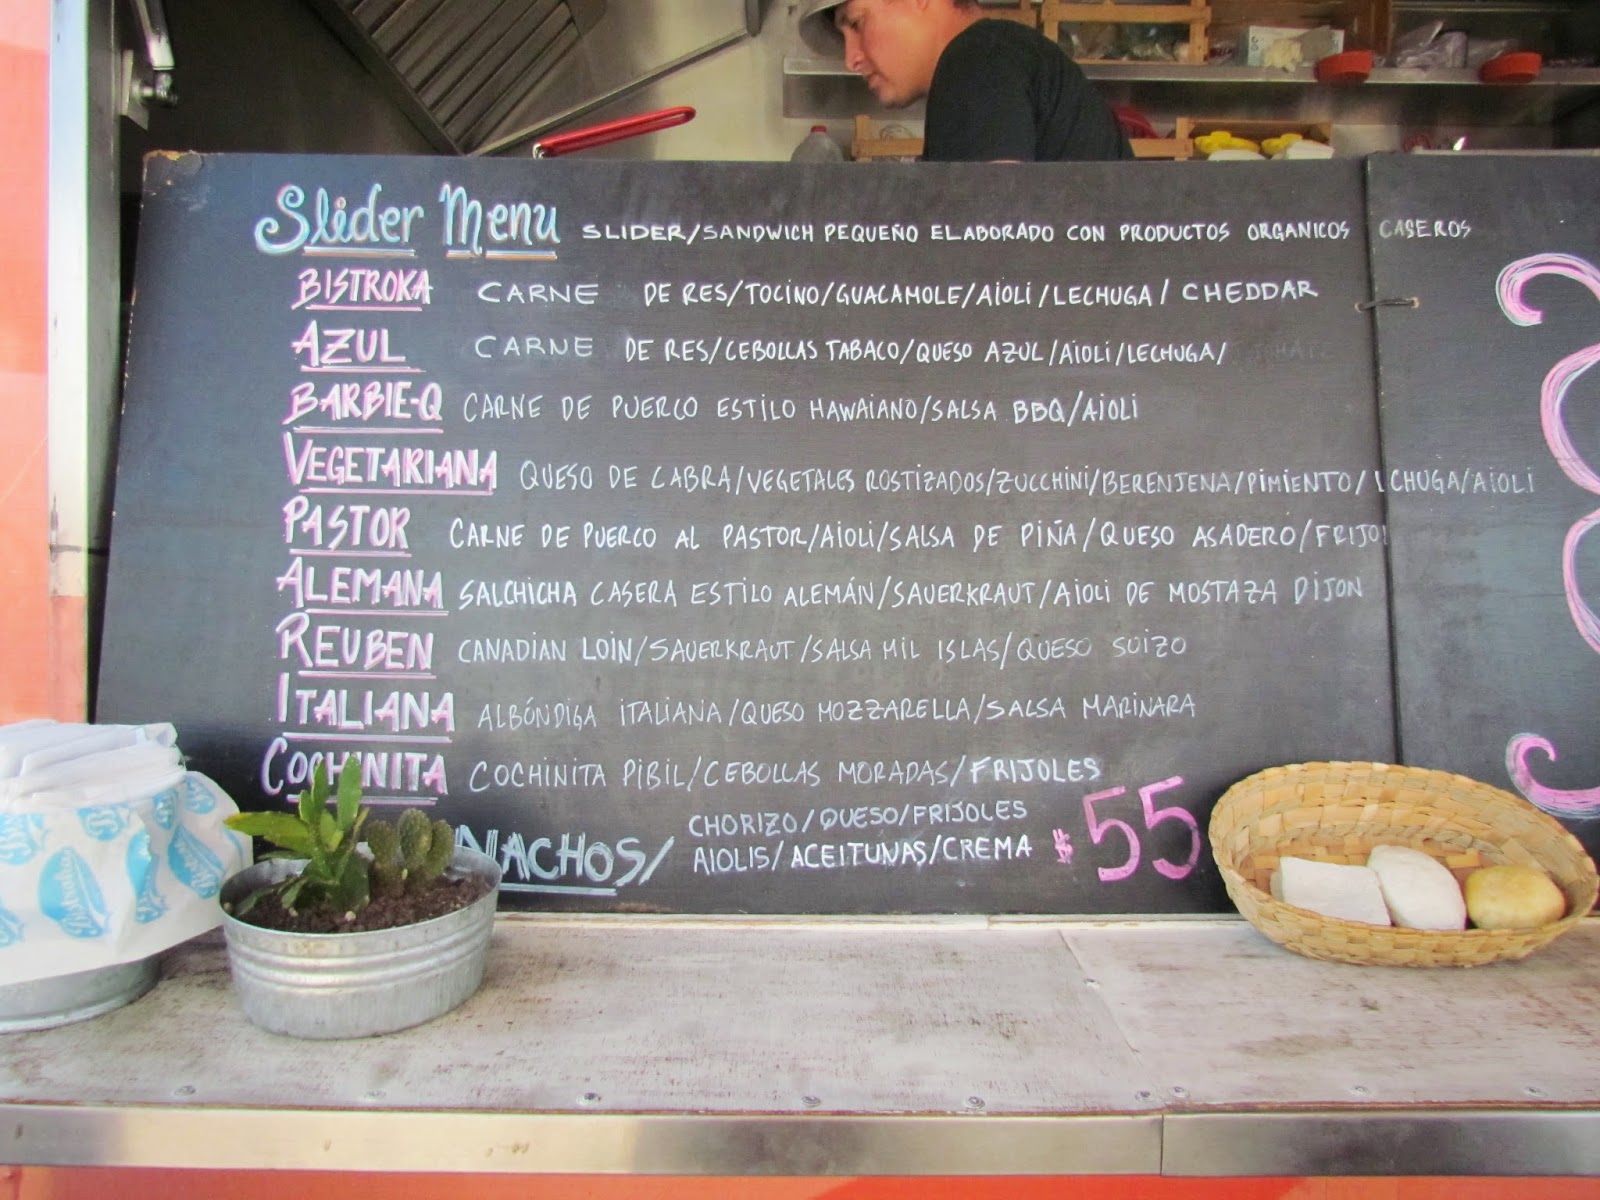 Slider Menu SLIDER/SANDWICH PEQUEÑO ELABORADO CON PRODUCTOS ORGANICOS CASEROS
BISTROKA CARNE DE RES/TOCINO/GUACAMOLE/AIOLI/LECHUGA/CHEDDAR
AZUL CARNE DE RES/CEBOLLAS TABACO/QUESO AZUL/AIOLI/LECHUGA/
BARBIE-Q CARNE DE PUERCO ESTILO HAWAIANO/SALSA BBQ/AIOLI
VEGETARIANA QUESO DE CABRA/VEGETALES ROSTIZADOS/ZUCCHINI/BERENJENA/PIMIENTO/L CHUGA/AIOLI
PASTOR CARNE DE PUERCO AL PASTOR/AIOLI/SALSA DE PIÑA/QUESO ASADERO/FRIJO
ALEMANA SALCHICHA CASERA ESTILO ALEMÁN/SAUERKRAUT/AIOLI DE MOSTAZA DIJON
REUBEN CANADIAN LOIN/SAUERKRAUT/SALSA MIL ISLAS/QUESO SUIZO
ITALIANA ALBÓNDIGA ITALIANA/QUESO MOZZARELLA/SALSA MARINARA
COCHINITA COCHINITA PIBIL/CEBOLLAS MORADAS/FRIJOLES
NACHOS/ CHORIZO/QUESO/FRIJOLES
AIOLIS/ACEITUNAS/CREMA $55